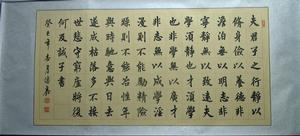 夫君子之行静以
修身儉以養德非
澹泊無以明志非
寧静無以致遠夫
學須静也才須學
也非學無以廣才
非志無以成學淫
漫則不能勵精險
躁則不能冶性年
與時馳意與日去
遂成枯落多不接
世悲守窮廬將復
何及誡子書
癸巳年